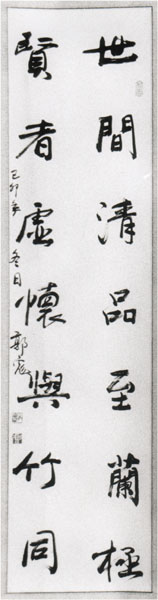 世間清品至蘭極
賢者虛懷與竹同
己卯年冬日郭震